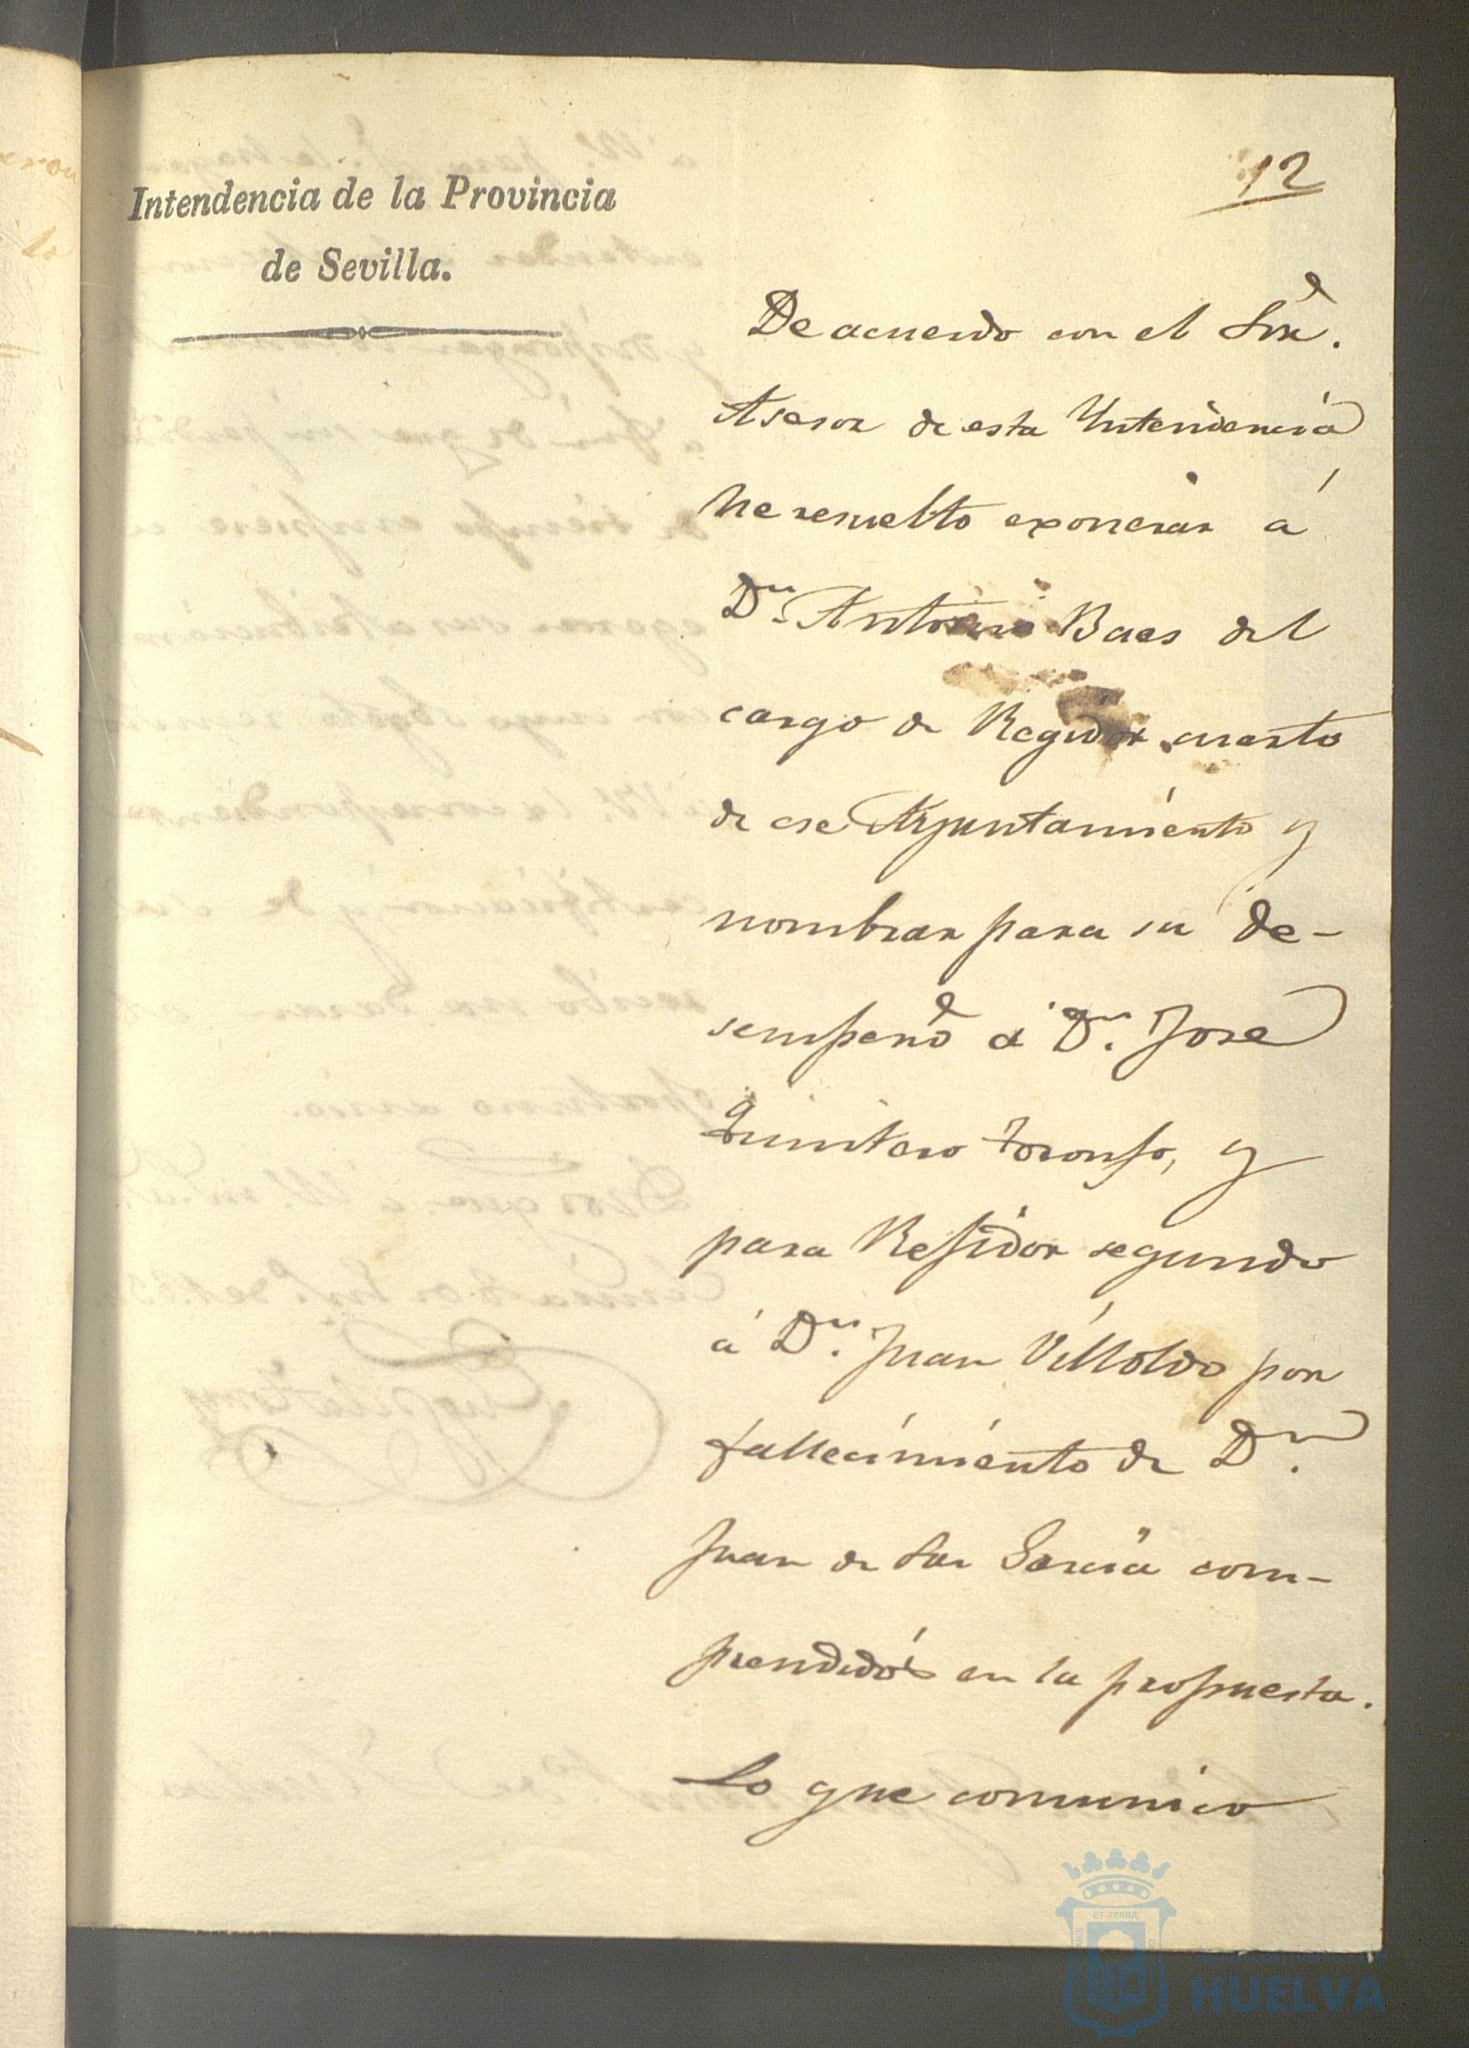 12
Intendencia de la Provincia
de Sevilla.
De acuerdo con el Sor.
Asesor de esta Yntendencia
he resuelto exonerar á
Dn. Antonio Baes del
cargo de Regidor cuarto
de ese Ayuntamiento y
nombrar para su de-
sempeño á Dn. Jose
Quintero y
para Regidor segundo
á Dn. Juan Villoldo por
fallecimiento de Dn.
Juan de Garcia com-
prendidos en la propuesta.
Lo que comunico
ET TERRÆ
HUELVA